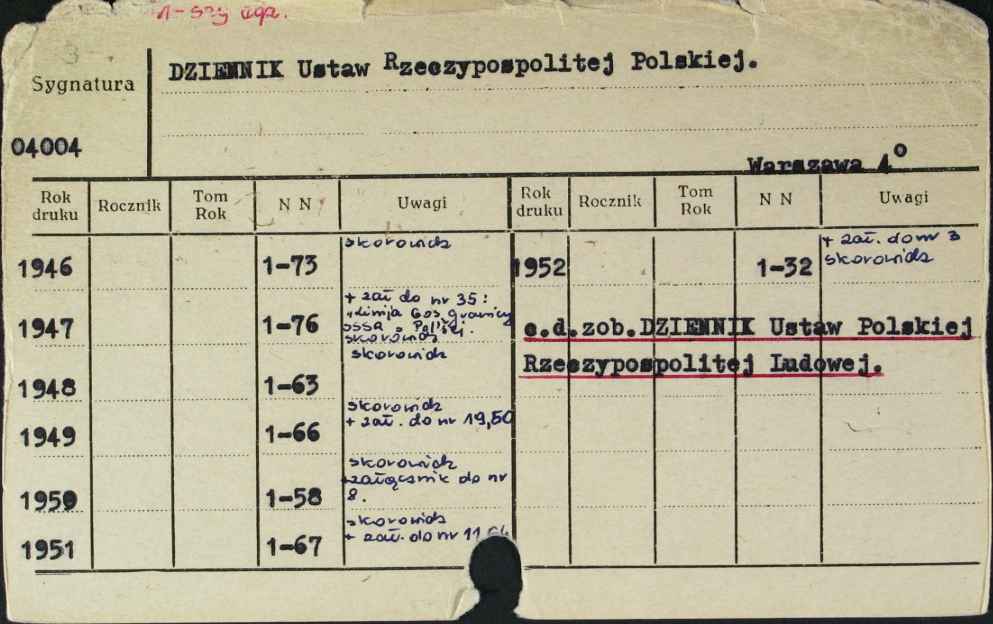 1-szy egz.
Sygnatura
DZIENNIK Ustaw Rzeczypospolitej Polskiej.
04004
Warszawa 4°
Rok druku Rocznik Tom Rok N N Uwagi Rok druku Rocznik Tom Rok N N Uwagi
1946 1-73 skorowidz 1952 1-32 + zał. do nr 3
skorowidz
1947 1-76 + zał do nr 35:
granicy
skorowidz
c.d.zob.DZIENNIK Ustaw Polskiej
Rzeczypospolitej Ludowej.
1948 1-63 skorowidz
1949 1-66 skorowidz
+ zał. do nr 19,50
1950 1-58 skorowidz
+załącznik do nr
8.
1951 1-67 skorowidz
+ zał. do nr 11